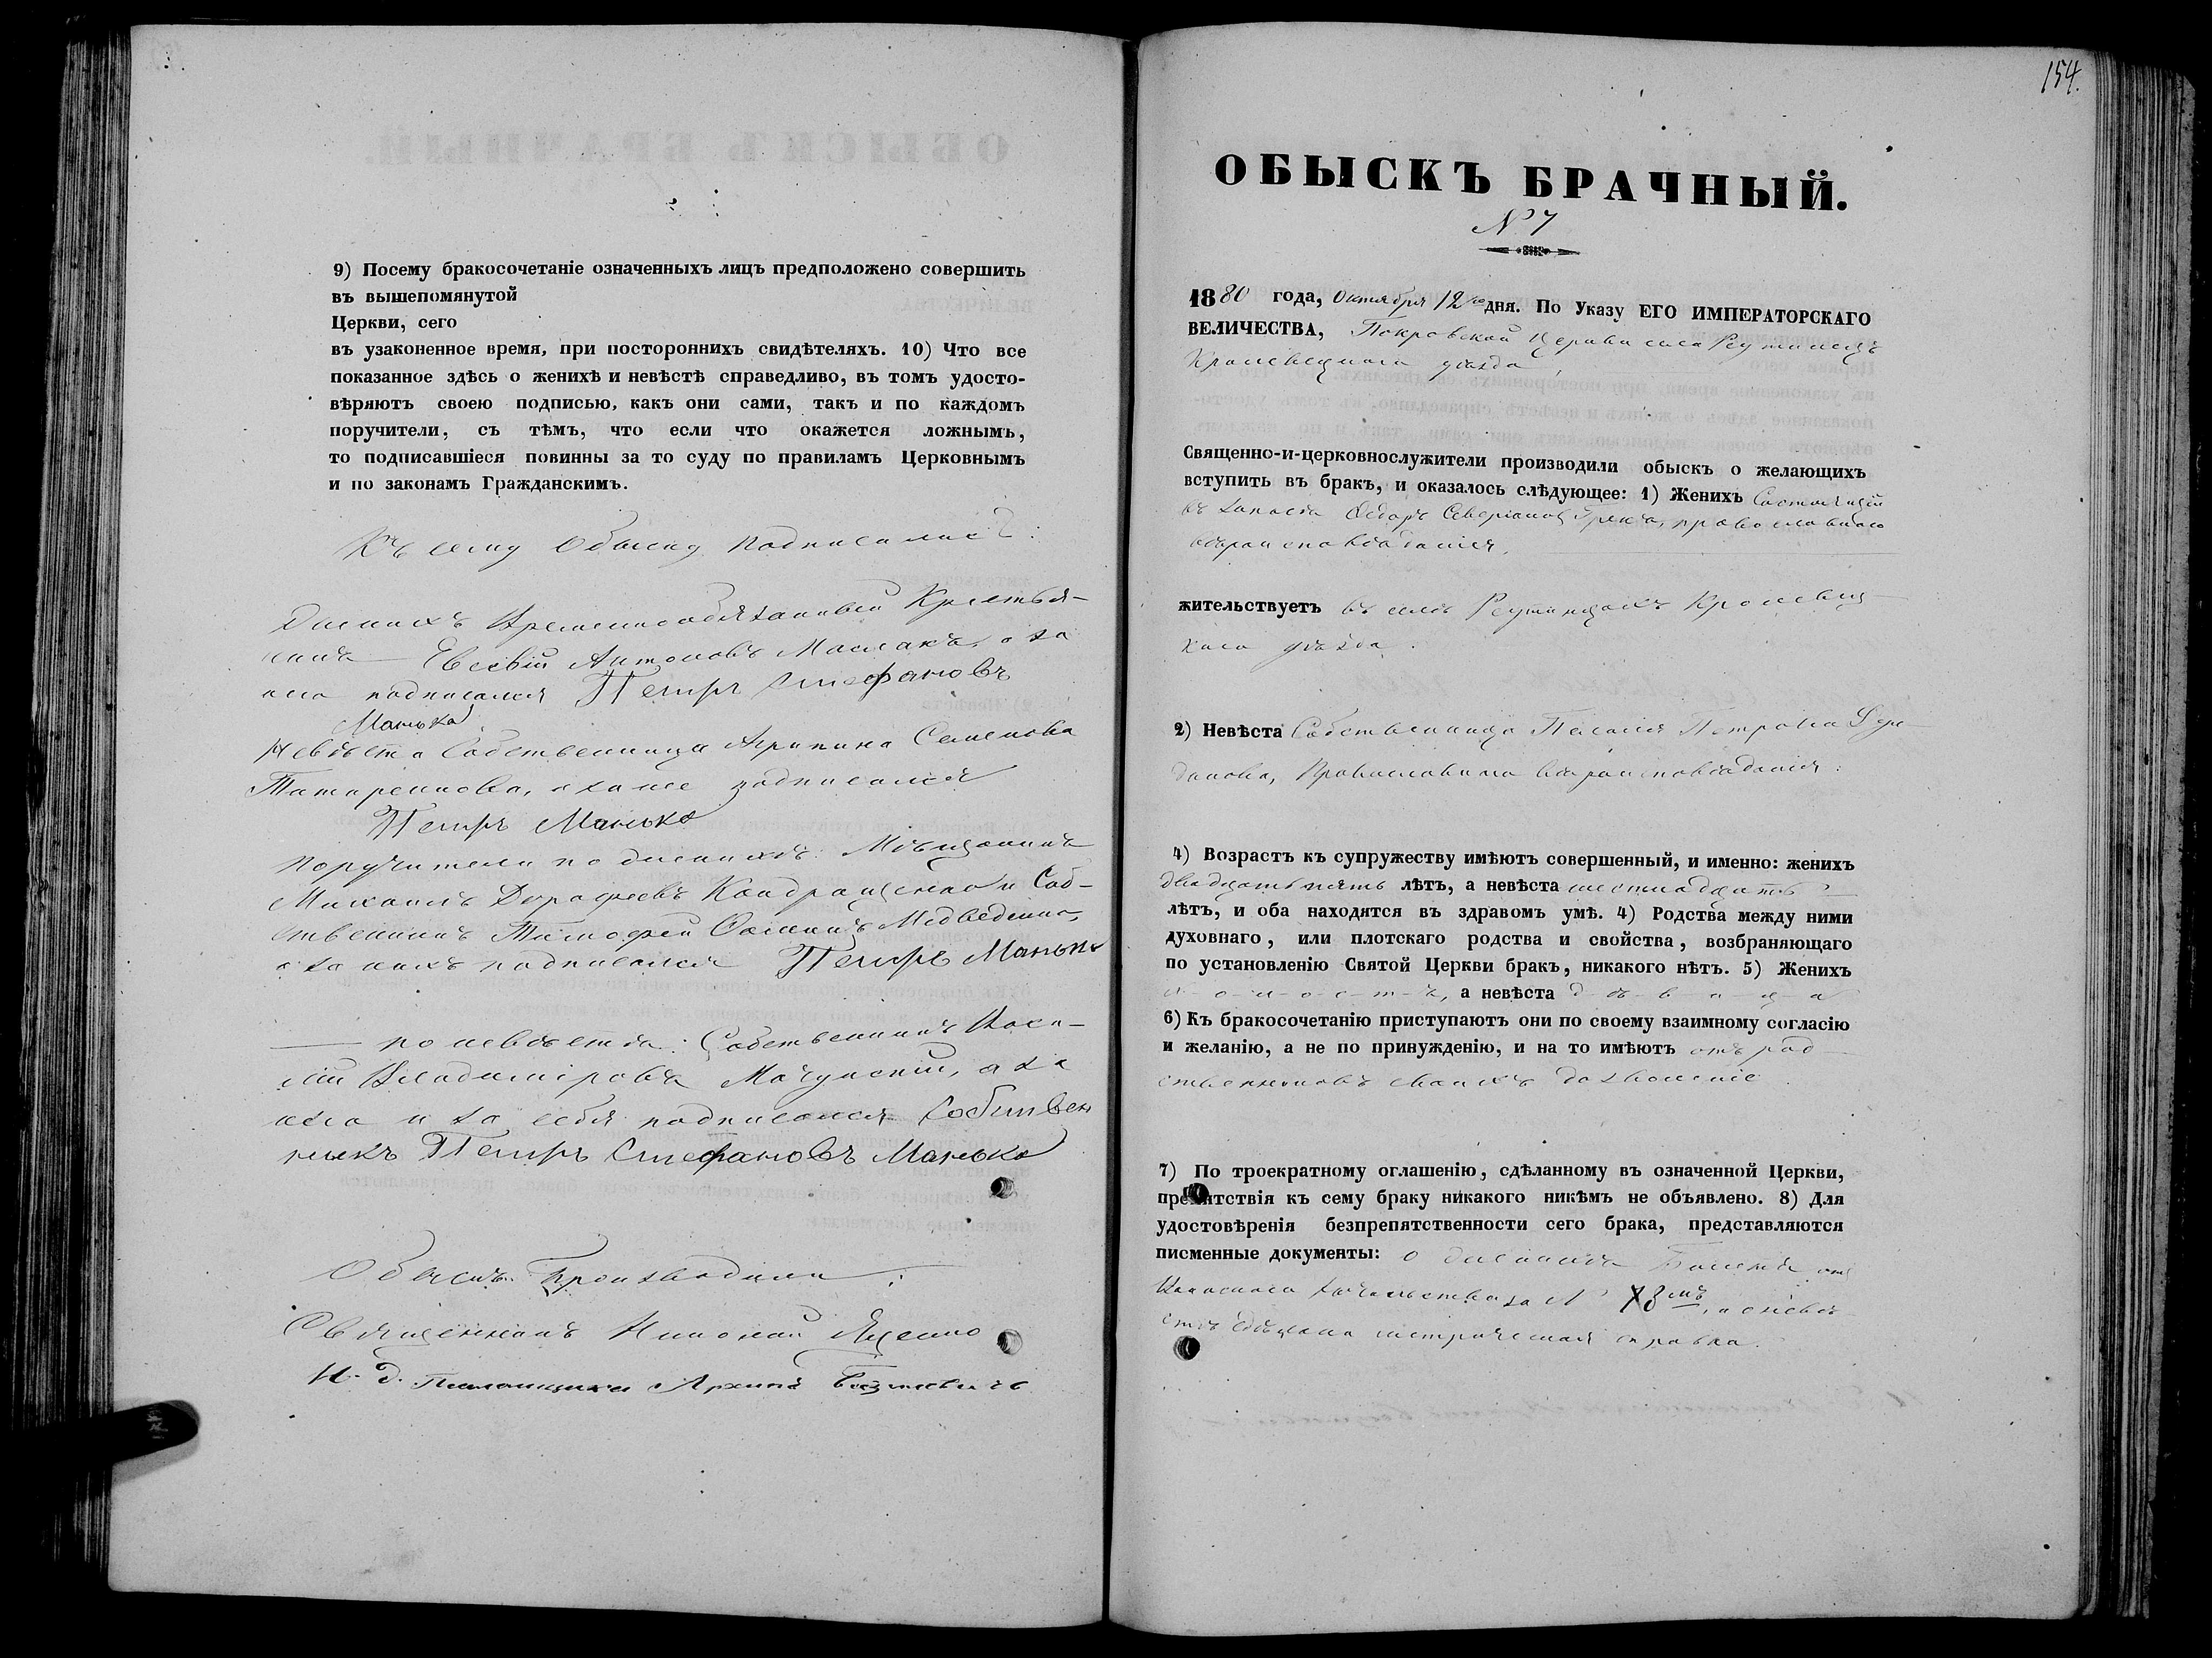 9) Посему бракосочетаніе означенныхъ лицъ предположено совершить
въ вышепомянутой
Церкви, сего
въ узаконенное время, при постороннихъ свидѣтеляхъ. 10) Что все
показанное здѣсь о женихѣ и невѣстѣ справедливо, въ томъ удосто-
вѣряютъ своею подписью, какъ они сами, такъ и по каждомъ
поручители, съ тѣмъ, что если что окажется ложнымъ,
то подписавшіеся повинны за то суду по правиламъ Церковнымъ
и по законамъ Гражданскимъ.
Къ сему Обыску подписались:
Женихъ Временнообязанный Крестья-
нинъ Евсевій Антоновъ Маслакъ, а за
него подписался Петръ Стефановъ
Манько
Невѣста Собственница Агрипина Семенова
Татаренкова, а за нее подписался
Петръ Манько
Поручители по женихѣ: Мѣщанинъ
Михаилъ Дорофеевъ Кондращенко и Соб-
ственникъ Тимофей Медведенко
а за нихъ подписался Петръ Манько
по невѣстѣ: Собственникъ Васи-
лій Владиміровъ а за
него и за себя подписался Собствен
никъ Петръ Стефановъ Манько
Обыскъ производили:
Священникъ Николай Яценко
И. д. Псаломщика Архипъ
154.
ОБЫСКЪ БРАЧНЫЙ.
№ 7
1880 года, Октября 12го дня. По Указу ЕГО ИМПЕРАТОРСКАГО
ВЕЛИЧЕСТВА, Покровской Церкви села Реутинецъ
Кролевецкаго уѣзда,
Священно-и-церковнослужители производили обыскъ о желающихъ
вступить въ бракъ, и оказалось слѣдующее: 1) Женихъ Состоящій
въ запасѣ Ѳедоръ Северіановъ Грекъ, православнаго
вѣроисповѣданія,
жительствуетъ въ селѣ Реутинцахъ Кролевец
каго уѣзда.
2) Невѣста Собственница Пелагія Петрова
Православнаго вѣроисповѣданія.
4) Возрастъ къ супружеству имѣютъ совершенный, и именно: женихъ
двадцать пять лѣтъ, а невѣста шестнадцать
лѣтъ, и оба находятся въ здравомъ умѣ. 4) Родства между ними
духовнаго, или плотскаго родства и свойства, возбраняющаго
по установленію Святой Церкви бракъ, никакого нѣтъ. 5) Женихъ
х-о-л-о-с-т-ъ, а невѣста д-ѣ-в-и-ц-а
6) Къ бракосочетанію приступаютъ они по своему взаимному согласію
и желанію, а не по принужденію, и на то имѣютъ отъ род
ственниковъ своихъ дозволеніе.
7) По троекратному оглашенію, сдѣланному въ означенной Церкви,
препятствія къ сему браку никакого никѣмъ не объявлено. 8) Для
удостовѣренія безпрепятственности сего брака, представляются
писменные документы: о женихѣ Билетъ отъ
Воинскаго Начальства за № а о невѣ
стѣ метрическая справка.